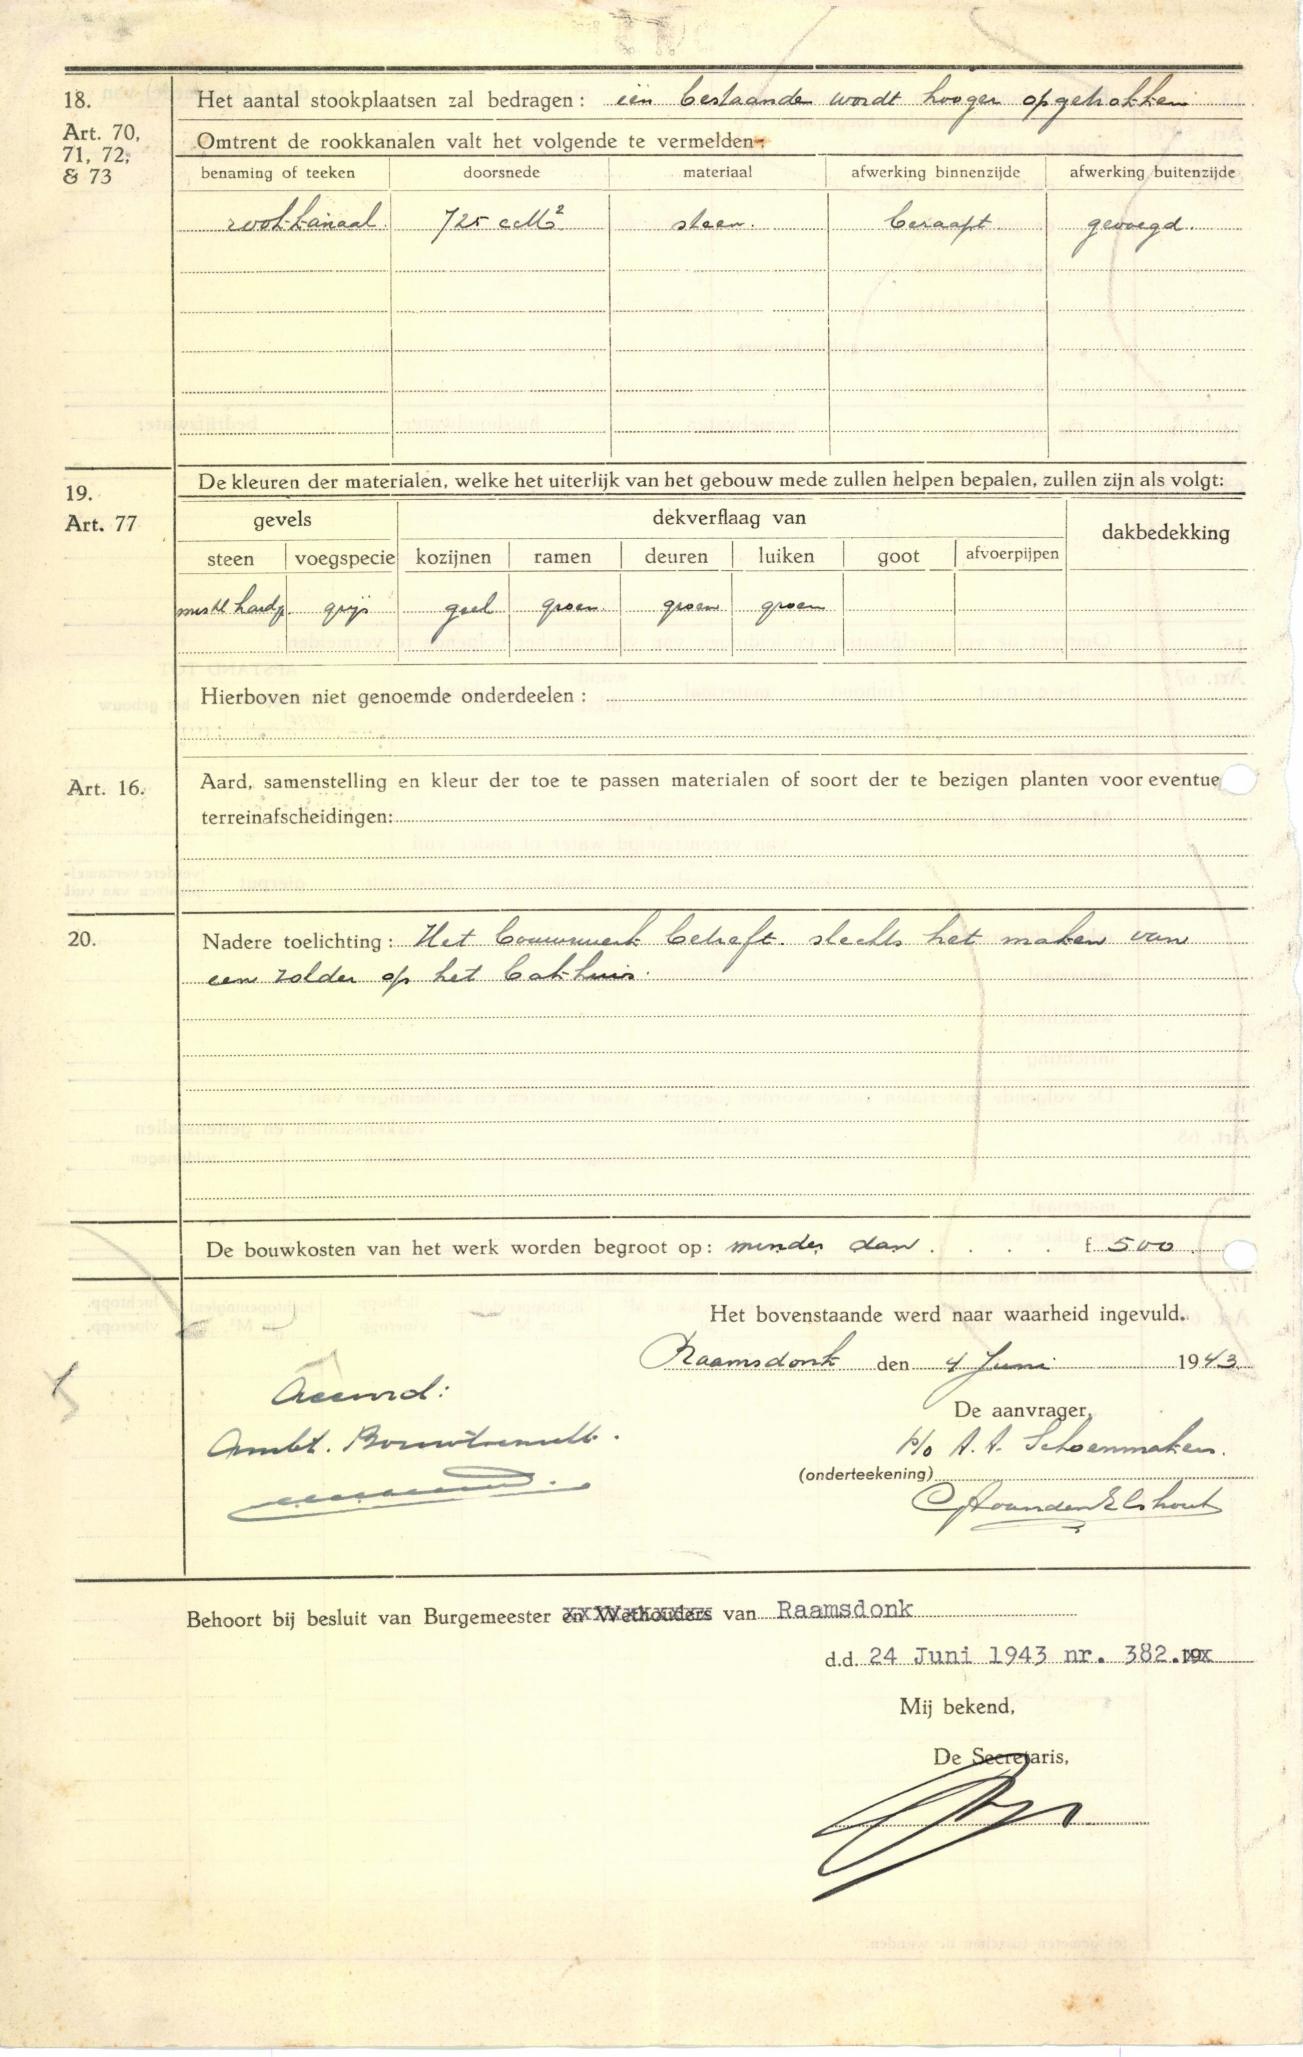 18. Het aantal stookplaatsen zal bedragen: een bestaande wordt hooger opgetrokken
Art. 70, 71, 72, & 73
Omtrent de rookkanalen valt het volgende te vermelden:
benaming of teeken doorsnede materiaal afwerking binnenzijde afwerking buitenzijde
rookkanaal 725 cM² steen. beraapt gevoegd.
19. De kleuren der materialen, welke het uiterlijk van het gebouw mede zullen helpen bepalen, zullen zijn als volgt:
Art. 77
gevels dekverflaag van dakbedekking
steen voegspecie kozijnen ramen deuren luiken goot afvoerpijpen
grijs geel groen groen groen
Hierboven niet genoemde onderdeelen:
Art. 16. Aard, samenstelling en kleur der toe te passen materialen of soort der te bezigen planten voor eventue
terreinafscheidingen:
20. Nadere toelichting: Het bouwwerk betreft slechts het maken van
een zolder op het bakhuis.
De bouwkosten van het werk worden begroot op: minder dan . . . . f 500
Het bovenstaande werd naar waarheid ingevuld.
Raamsdonk den 4 Juni 1943
Accoord:
De aanvrager,
Ambt. Bouwtoezicht.
p/o A. A. Schoenmakers.
(onderteekening)
Behoort bij besluit van Burgemeester en Wethouders van Raamsdonk
d.d. 24 Juni 1943 nr. 382.
Mij bekend,
De Secretaris,